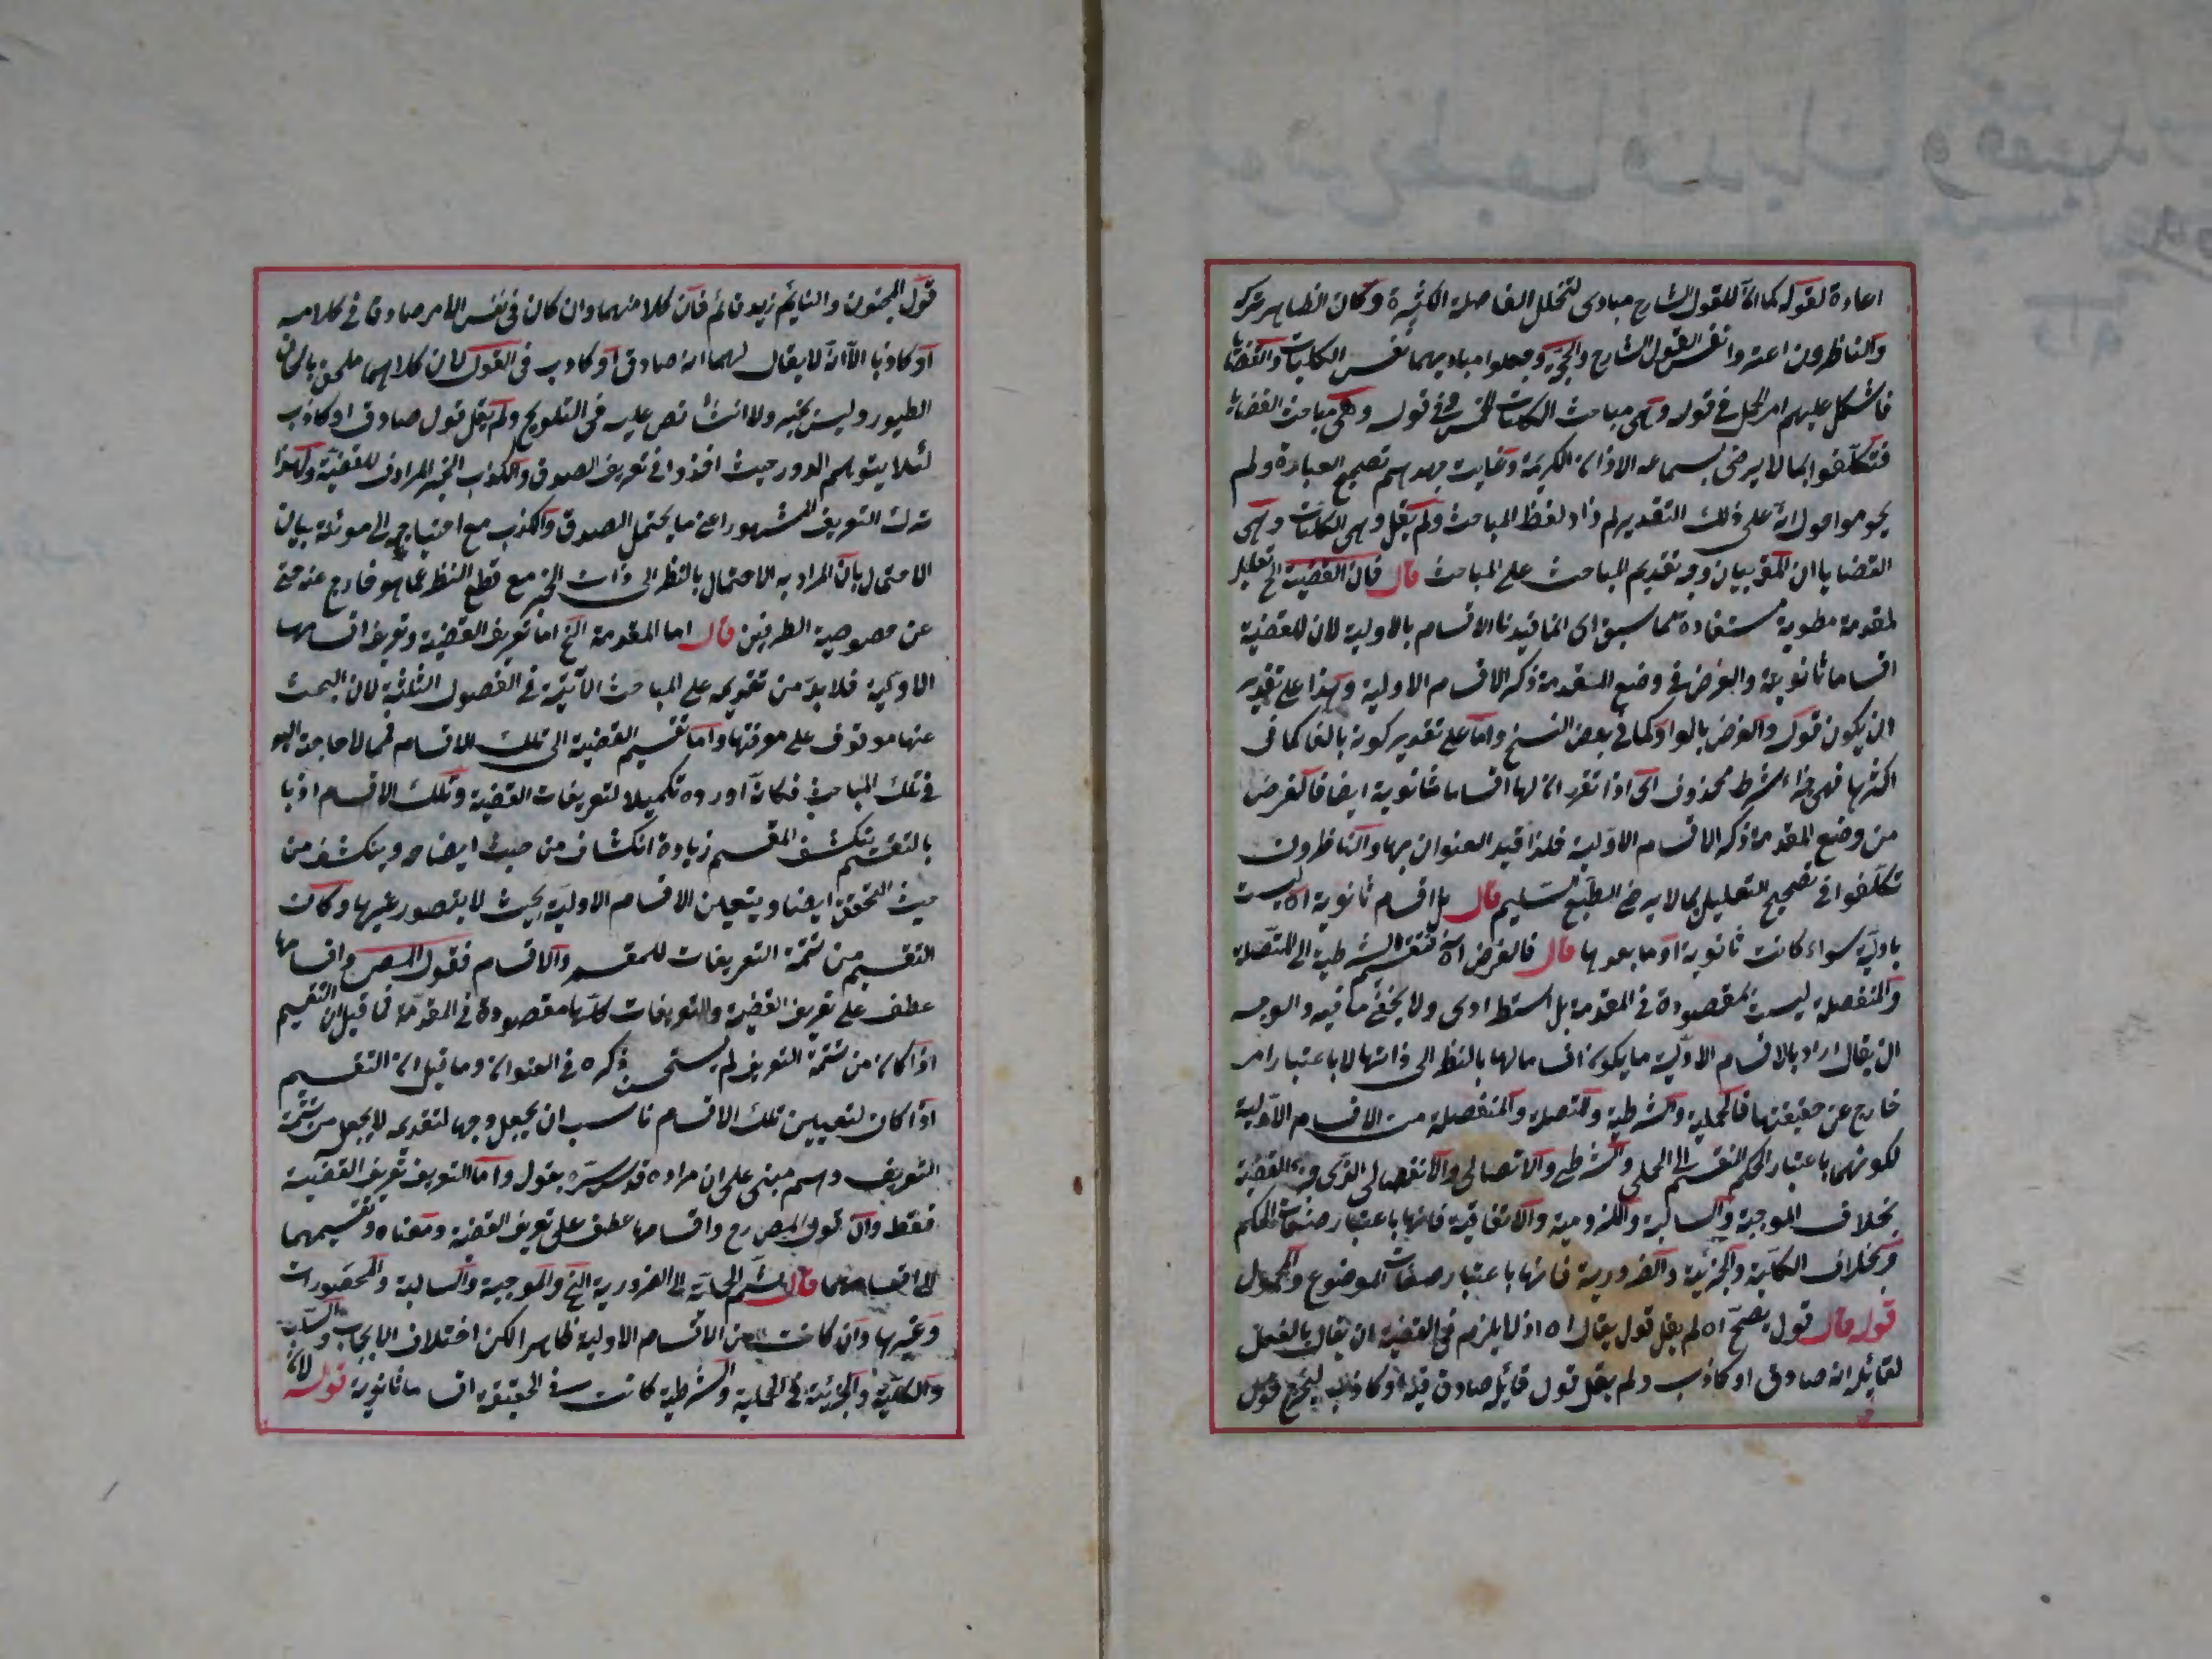 اعادة لقوله كما ان للقول الشارح مبادى لتخلل الفاصلة الكثيرة وكان الظاهر تركه
والناظرون اعتبروا نفس القول الشارح والحجة وجعلوا مباديهما نفس الكليات والقضايا
فاشكل عليهم امر الحمل فى قوله وهى مباحث الكليات الخمس وفى قوله وهى مباحث القضايا
فتكلفوا بما لا يرضى بسماعه الاذان الكريمة وغاية جهدهم تصحيح العبارة ولم
يحوموا حول انه على ذلك التقدير لم زاد لفظ المباحث ولم يقل وهى الكليات وهى
القضايا مع ان المقص بيان وجه تقديم المباحث على المباحث قال فان القضية الخ تعليل
لمقدمة مطوية مستفادة مما سبق اى انما قيدنا الاقسام بالاولية لان للقضية
اقساما ثانوية والغرض فى وضع المقدمة ذكر الاقسام الاولية وهذا على تقدير
ان يكون قوله والغرض بالواو كما فى بعض النسخ واما على تقدير كونه بالفا كما فى
اكثرها فهى جزاء شرط محذوف اى اذا تقرر ان لها اقساما ثانوية ايضا فالغرض
من وضع المقدمة ذكر الاقسام الاولية فلذا قيد العنوان بها والناظرون
تكلفوا فى تصحيح التعليل بما لا يرضى الطبع السليم قال بل اقسام ثانوية اه ليست
باولية سواء كانت ثانوية او ما بعدها قال فالغرض اه فتقسيم الشرطية الى المتصلة
والمنفصلة ليست مقصودة فى المقدمة بل استطرادى ولا يخفى ما فيه والوجه
ان يقال اراد بالاقسام الاولية ما يكون اقساما لها بالنظر الى ذاتها لا باعتبار امر
خارج عن حقيقتها فالحملية والشرطية والمتصلة والمنفصلة من الاقسام الاولية
لكونهما باعتبار الحكم المنقسم الى الحملى والشرطى والاتصالى والانفصالى الذى هو القضية
بخلاف الموجبة والسالبة واللزومية والاتفاقية فانها باعتبار صفات الحكم
وبخلاف الكلية والجزئية والضرورية فانها باعتبار صفات الموضوع والمحمول
قوله قال قول يصح اه لم يقل قول يقال اه اذ لا يلزم فى القضية ان يقال بالفعل
لقائله انه صادق او كاذب ولم يقل قول قائله صادق فيه او كاذب ليخرج قول
قول المجنون والنائم زيد قائم فان كلا منهما وان كان فى نفس الامر صادقا فى كلامه
او كاذبا الا انه لا يقال لهما انه صادق او كاذب فى القول لان كلامهما ملحق بالحان
الطيور وليس بخبر ولا انشاء نص عليه فى التلويح ولم يقل قول صادق او كاذب
لئلا يتوهم الدور حيث اخذوا فى تعريف الصدق والكذب الخبر المرادف للقضية ولهذا
ترك التعريف المشهور اعنى ما يحتمل الصدق والكذب مع احتياجه الى مونة بيان
الاحتمال بان المراد به الاحتمال بالنظر الى ذات الخبر مع قطع النظر عما هو خارج عنه حتى
عن خصوصية الطرفين قال اما المقدمة الخ اما تعريف القضية وتعريف اقسامها
الاولية فلا بد من تقديمه على المباحث الآتية فى الفصول الثلثة لان البحث
عنها موقوف على معرفتها واما تقسيم القضية الى تلك الاقسام فمما لا حاجة اليه
فى تلك المباحث فكانه اورده تكميلا لتعريفات القضية وتلك الاقسام اذ بها
بالتقسيم ينكشف المقسم زيادة انكشاف من حيث ايضاحه وينكشف من
حيث التحقق ايضا ويتعين الاقسام الاولية بحيث لا يتصور غيرها وكان
التقسيم من تتمة التعريفات للمقسم والاقسام فقول المص رح واقسامها
عطف على تعريف القضية والتعريفات كلها مقصودة فى المقدمة فما قيل ان التقسيم
اذا كان من تتمة التعريف لم يستحسن ذكره فى العنوان وما قيل ان التقسيم
اذا كان لتعيين تلك الاقسام ناسب ان يجعل وجها لتقديمه لا يجعل من تتمة
التعريف وهم مبنى على ان مراده قدس سره بقوله واما التعريف تعريف القضية
فقط وان قول المص رح واقسامها عطف على تعريف القضية ومعناه وتقسيمهما
الى اقسامهما قال ثم الحملية الى الضرورية الخ والموجبة والسالبة والمحصورات
وغيرها وان كانت من الاقسام الاولية ظاهرا لكن اختلاف الايجاب والسلب
والكلية والجزئية فى الحملية والشرطية كانت فى الحقيقة اقساما ثانوية قوله لان